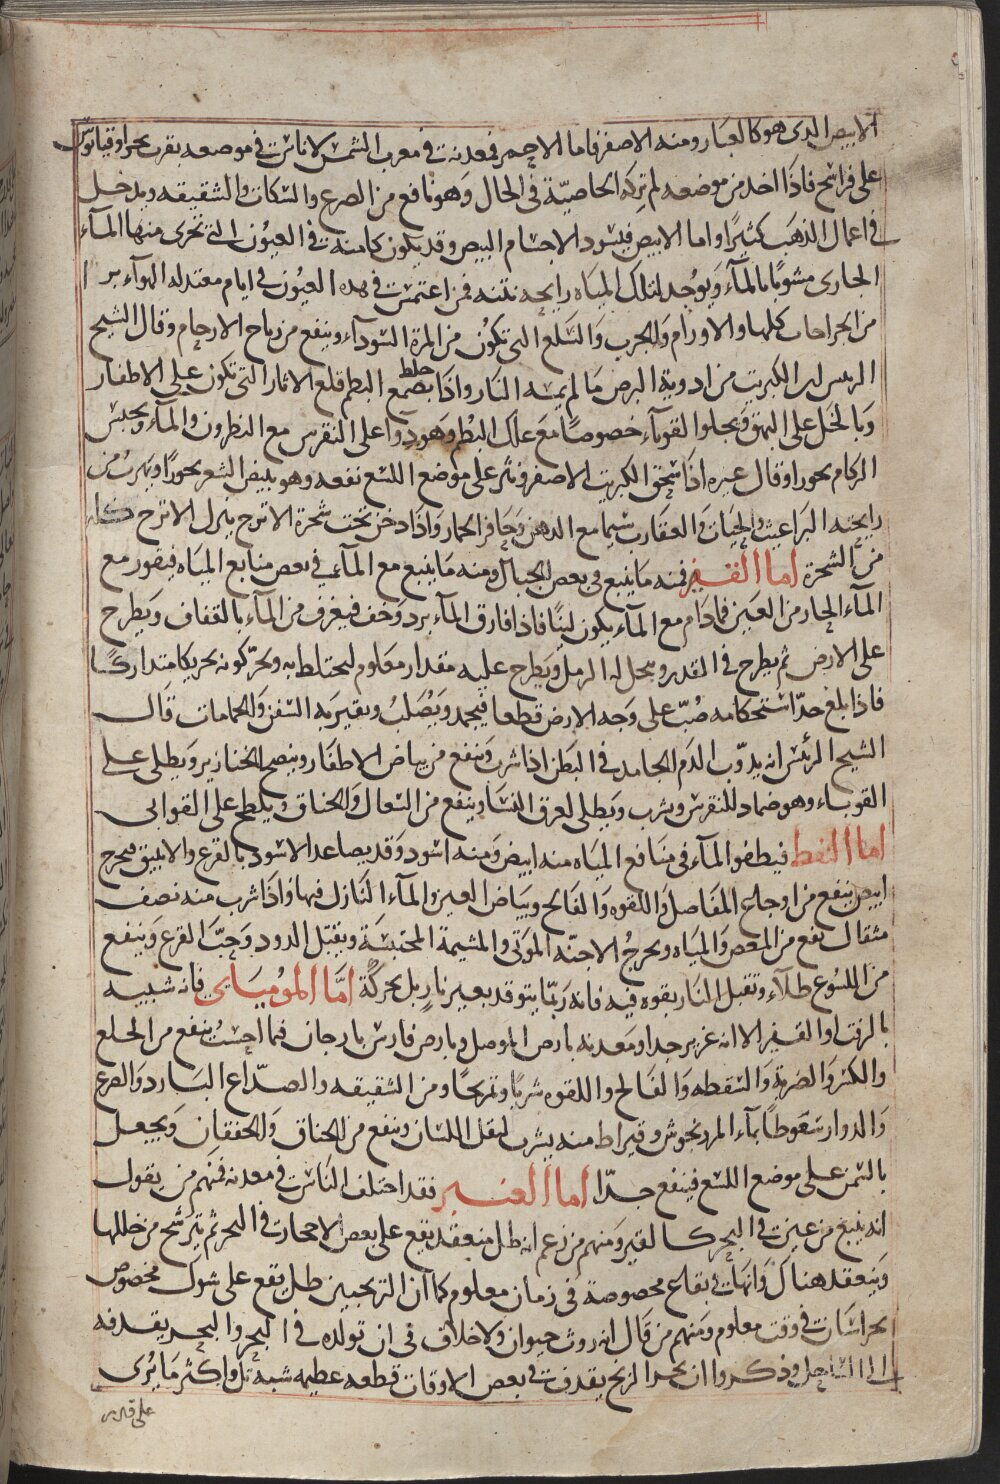 الابيض الذى هو كالغبار ومنه الاصفر فاما الاحمر فمعدنه فى مغرب الشمس لا ناس فى موضعه بقرب بحر اوقيانوس
على فراسخ فاذا اخذ من موضعه لم تر له الخاصيّة فى الحال وهو نافع من الصرع والسكات والشقيقه ويدخل
فى اعمال الذهب كثيرًا واما الابيض فيسود الاجسام البيض وقد يكون كامنه فى العيون التى تجرى منها المآء
الجارى مشوبًا بالمآء ويوجد لتلك المياه رايحه نتنه فمن اغتمس فى هذه العيون فى ايام معتدله الهوآء بر ا
من الجراحات كلها والاورام والجرب والسلع التى تكون من المرة السودآء وينفع من رياح الارحام وقال الشيخ
الريس ان الكبريت من ادوية البرص ما لم يمسه النار واذا خلط بصمغ البطم قلع الاثار التى تكون على الاظفار
وبالخل على البهق ويجلوا القوبآء خصوصًا مع علك البطم وهو دوآ على النقرس مع النطرون والمآء ويحبس
الزكام بخورا وقال غيره اذا سحق الكبريت الاصفر ونثر على موضع اللسع نفعه وهو يبيض الشعر بخورًا ويهرب من
رايحته البراغيث والحيات والعقارب سيما مع الدهن وحافر الحمار واذا دخن تحت شجرة الاترج ينزل الاترج كله
من الشجرة اما القير فمنه ما ينبع فى بعض الجبال ومنه ما ينبع مع المآء فى بعض منابع المياه فيفور مع
المآء الحار من العين فما دام مع المآء يكون لينًا فاذا فارق المآء برد وجف فيغرف من المآء بالقفاف ويطرح
على الارض ثم يطرح فى القدر وينخل له الرمل ويطرح عليه مقدار معلوم ليختلط به ويحرّكونه تحريكا متداركًا
فاذا بلغ حدّ استحكامه صُبّ على وجه الارض قطعا فيجمد ويصلبُ ويقير به السفن والحمامات قال
الشيخ الرئيس انه يذوّب الدم الجامد فى البطن اذا شرب وينفع من بياض الاظفار وينضج الخنازير ويطلى على
القوبآء وهو ضماد للنقرس ويشرب ويطلى لعرق النسا وينفع من السعال والخناق ويلطخ على القوابى
اما النفط فيطفو المآء فى منافع المياه منه ابيض ومنه اسود وقد يصاعد الاسود بالقرع والانبيق فيخرج
ابيض ينفع من اوجاع المفاصل واللقوه والفالج وبياض العين والمآء النازل فيها واذا شرب منه نصف
مثقال نفع من المغص والمياه ويخرج الاجنّه الموتى والمشيمة المحتبسة ويقتل الدود وحبّ القرع وينفع
من اللسوع طلآء وتقبل النار بقوه فيه فانه ربّما يتوقد بغير نار بل بحركة امّا الموميآى فانه شبيه
بالزفت او القير الا انه عزيز جدا ومعدنه بارض الموصل وبارض فارس بارجان فما احست ينفع من الخلع
والكسر والضربة والسقطه والفالج واللقوه شربًا وتمريخًا ومن الشقيقه والصدّاع البارد والصرع
والدوار سعوطًا بمآء المردنجوش وقيراط منه يشرب لثقل اللسان وينفع من الخناق والخفقان ويجعل
بالسمن على موضع اللسع فينفع جدّا اما العنبر فقد اختلف الناس فى معدنه فمنهم من يقول
انه ينبع من عين فى البحر كالقير ومنهم من زعم انه طل منعقد يقع على بعض الاحجار فى البحر ثم يترشح من خللها
وينعقد هناك وانهات فى بقاع مخصوصة فى زمان معلوم كما ان الترنجبين طل يقع على شوك مخصوص
بخراسان فى وقت معلوم ومنهم من قال انه روث حيوان ولا خلاف فى ان تولده فى البحر والبحر يقذفه
الى الساحل وذكروا ان بحر الزنج يقذف فى بعض الاوقات قطعه عظيمه شبه تل واكثر ما يُرى
على قدر